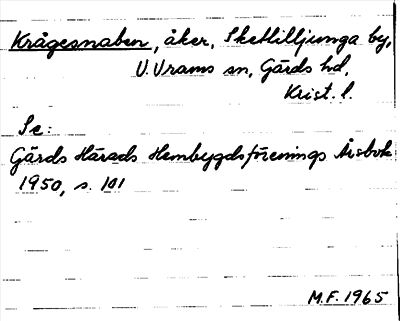 Krågesnaben, åker, Sketlilljunga by,
V. Vrams sn, Gärds hd,
Krist. l.
Se:
Gärds Härads Hembygdsförenings Årsbok
1950, s. 101
M.F. 1965